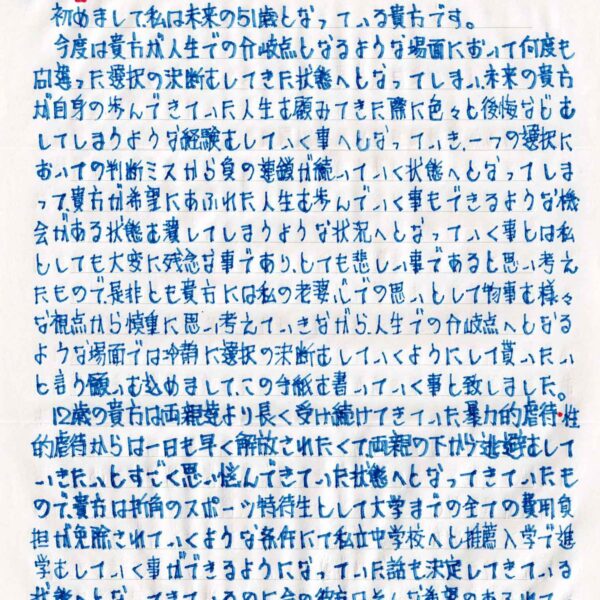 初めまして、私は未来の51歳となっている貴方です。
今度は貴方が人生での分岐点となるような場面において何度も
間違った選択の決断をしてきた状態へとなってしまい、未来の貴方
が自身の歩んできていた人生を顧みてきた際に色々と後悔などを
してしまうような経験をしていく事へとなっていき、一つの選択に
おいての判断ミスから負の連鎖が続いていく状態へとなってしま
って、貴方が希望にあふれた人生を歩んでいく事もできるような機
会がある状態を潰してしまうような状況へとなっていく事とは私
としても大変に残念な事であり、とても悲しい事であると思い考え
たもので、是非とも貴方には私の老婆心での思いとして物事を様々
な視点から慎重に思い考えていきながら、人生での分岐点へとなる
ような場面では冷静に選択の決断をしていくようにして貰いたい
と言う願いを込めまして、この手紙を書いていく事と致しました。
12歳の貴方は両親達より長く受け続けてきていた暴力的虐待・性
的虐待からは一日も早く解放されたくて、両親の下から逃避をして
いきたいとすごく思い悩んできていた状態へとなってきていたも
ので、貴方は折角のスポーツ特待生として大学までの全ての費用負
担が免除されていくような条件にて私立中学校へと推薦入学で進
学をしていく事ができるようになっていた話も決定してきている